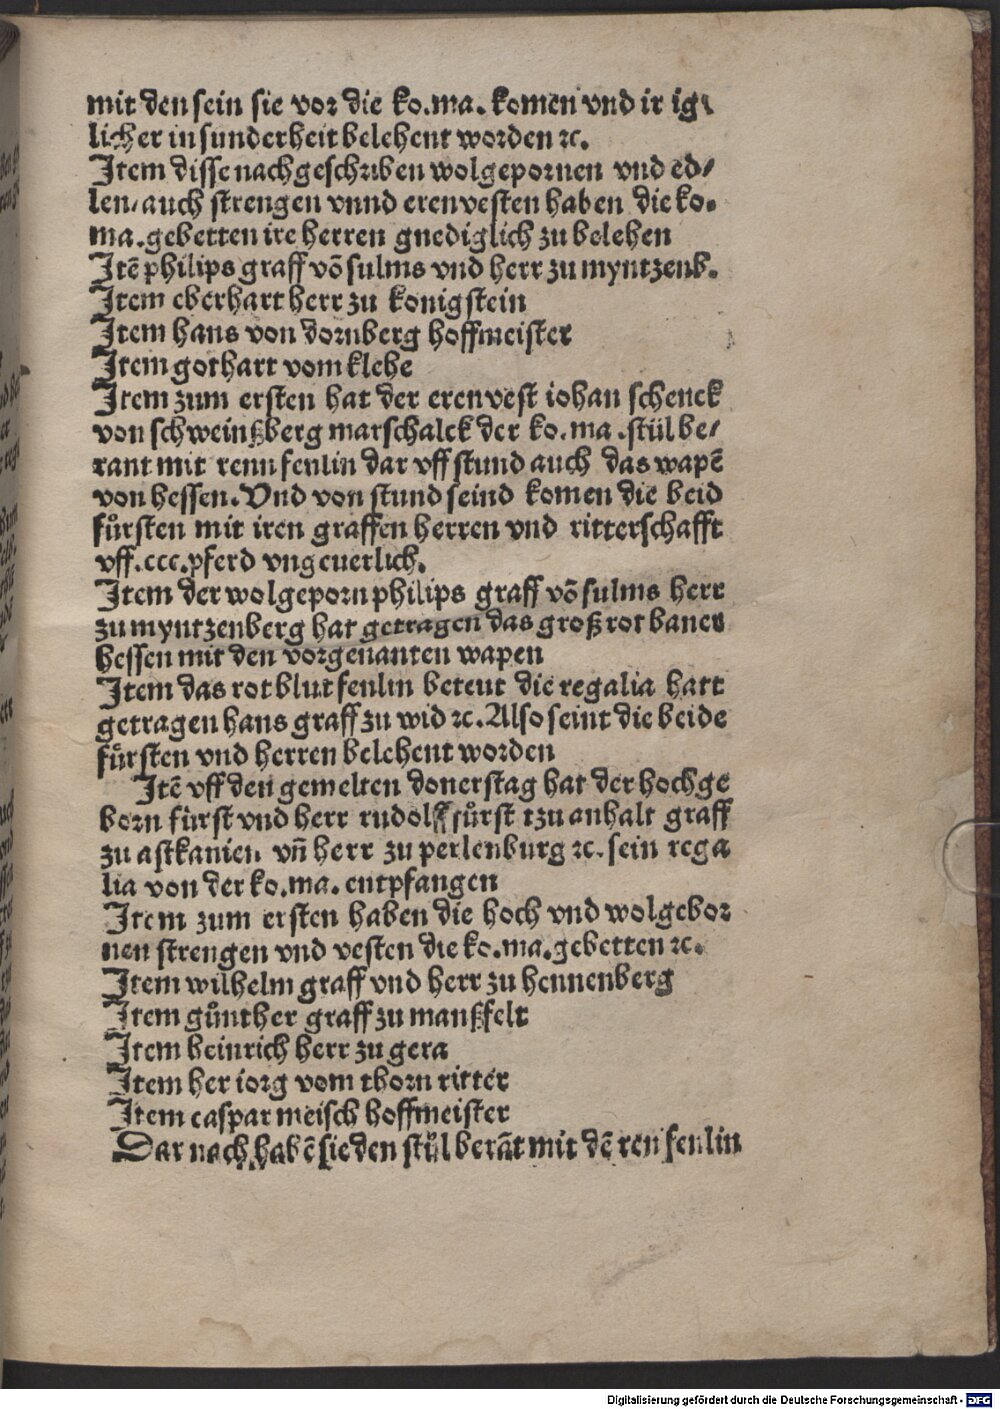 mit den sein sie vor die ko.ma. komen vnd ir ig⸗
licher in sunderheit belehent worden ⁊c.
Item disse nachgeschriben wolgepornen vnd ed/
len/auch strengen vnnd erenvesten haben die ko.
ma.gebetten ire herren gnediglich zu belehen
Itē philips graff vō sulms vnd herr zu myntzenb.
Item eberhart herr zu konigstein
Item hans von dornberg hoffmeister
Item gothart vom klehe
Item zum ersten hat der erenvest iohan schenck
von schweinßberg marschalck der ko.ma.stül be/
rant mit rennfenlin dar vff stund auch das wapē
von hessen.Vnd von stund seind komen die beid
fůrsten mit iren graffen herren vnd ritterschafft
vff.ccc.pferd vngeuerlich.
Item der wolgeporn philips graff vō sulms herr
zu myntzenberg hat getragen das groß rot baner
hessen mit den vorgenanten wapen
Item das rot blut fenlin beteut die regalia hatt
getragen hans graff zu wid ⁊c. Also seint die beide
fůrsten vnd herren belehent worden
Itē vff den gemelten donerstag hat der hochge
born fürst vnd herr rudolff fůrst tzu anhalt graff
zu astkanien vn̄ herr zu perlenburg ⁊c. sein rega
lia von der ko.ma. entpfangen
Item zum ersten haben die hoch vnd wolgebor
nen strengen vnd vesten die ko.ma.gebetten ⁊c.
Item wilhelm graff vnd herr zu hennenberg
Item gůnther graff zu manßfelt
Item heinrich herr zu gera
Item her iorg vom thorn ritter
Item caspar meisch hoffmeister
Dar nach habē sie den stůl berāt mit dē ren fenlin
Digitalisierung gefördert durch die Deutsche Forschungsgemeinschaft - DFG